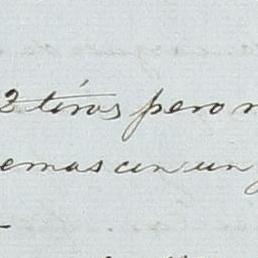 2 tiros pero
emas en un